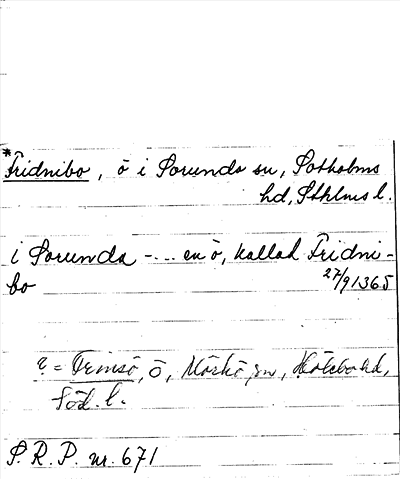 *Fridnibo, ö i Sorunda sn, Sotholms
hd, Sthlms l.
i Sorunda -... en ö, kallad Fridni-
bo 27/9 1365
? = Oxnsö, ö, Mörkö sn, Hölebo hd,
Söd. l.
S. R. P. nr. 671